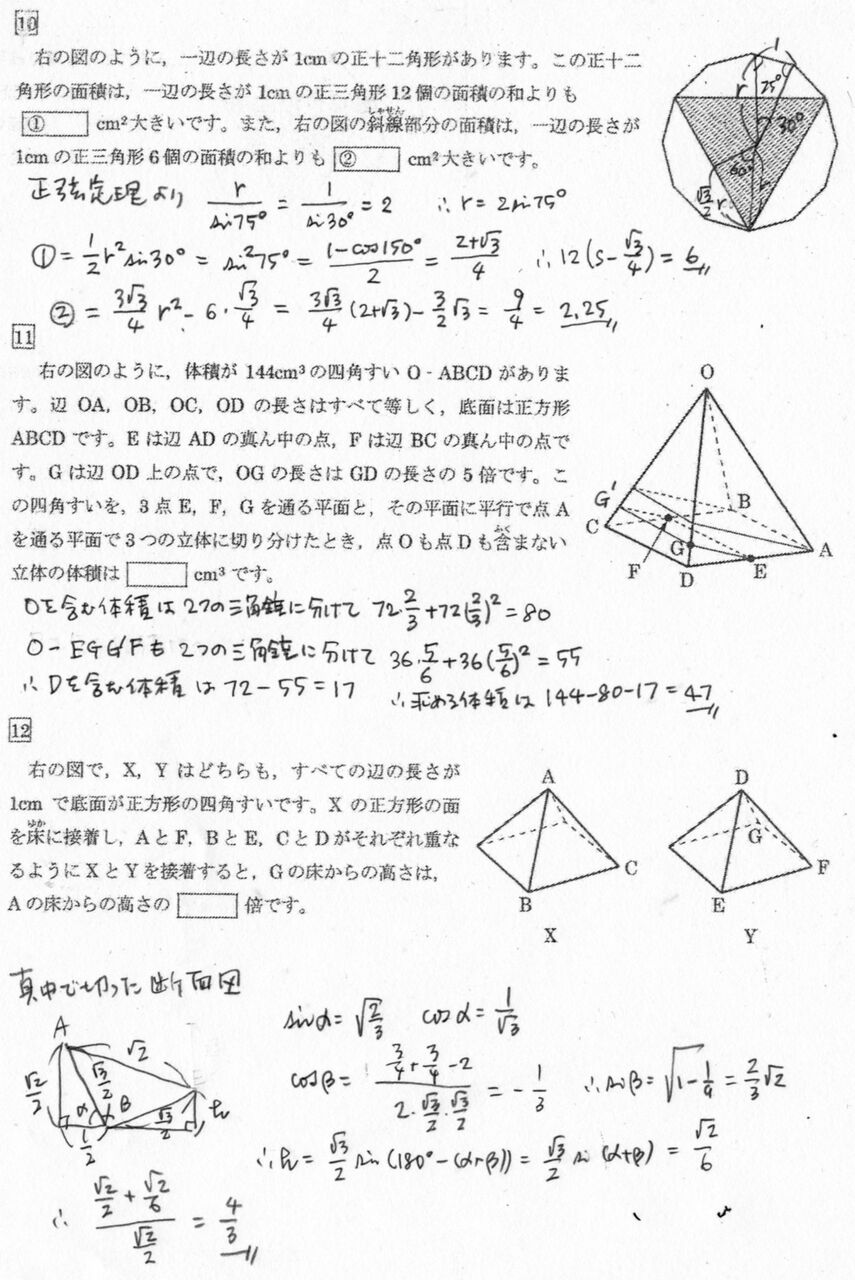 10
右の図のように，一辺の長さが1cmの正十二角形があります。この正十二
角形の面積は，一辺の長さが1cmの正三角形12個の面積の和よりも
① cm²大きいです。また，右の図の斜線部分の面積は，一辺の長さが
しゃせん
1cmの正三角形6個の面積の和よりも ② cm²大きいです。
1
r 75°
r 30°
60°
√3/2 r r
正弦定理より r/sin75° = 1/sin30° = 2 ∴ r = 2sin75°
① = 1/2 r² sin30° = sin²75° = (1-cos150°)/2 = (2+√3)/4 ∴ 12(S-√3/4) = 6
② = 3√3/4 r² - 6・√3/4 = 3√3/4 (2+√3) - 3/2 √3 = 9/4 = 2.25
11
右の図のように，体積が144cm³の四角すいO‐ABCDがありま
す。辺OA，OB，OC，ODの長さはすべて等しく，底面は正方形
ABCDです。Eは辺ADの真ん中の点，Fは辺BCの真ん中の点で
す。Gは辺OD上の点で，OGの長さはGDの長さの5倍です。こ
の四角すいを，3点E，F，Gを通る平面と，その平面に平行で点A
を通る平面で3つの立体に切り分けたとき，点Oも点Dも含まない
ふく
立体の体積は cm³です。
O
G'
B
C
G
A
F
D
E
Oを含む体積は2つの三角錐に分けて 72・2/3+72(2/3)² = 80
O-EGG'Fも2つの三角錐に分けて 36・5/6+36(5/6)² = 55
∴ Dを含む体積は 72-55=17 ∴求める体積は 144-80-17=47
12
右の図で，X，Yはどちらも，すべての辺の長さが
1cmで底面が正方形の四角すいです。Xの正方形の面
ゆか
を床に接着し，AとF，BとE，CとDがそれぞれ重な
るようにXとYを接着すると，Gの床からの高さは，
Aの床からの高さの 倍です。
A
B
C
X
D
G
F
E
Y
真中で切った断面図
A
√2
√2/2
√3/2
α
β
√3/2
h
1/2
sinα = √(2/3) cosα = 1/√3
cosβ = (3/4+3/4-2)/(2・√3/2・√3/2) = -1/3 ∴ sinβ = √(1-1/9) = 2/3 √2
∴ h = √3/2 sin(180°-(α+β)) = √3/2 sin(α+β) = √2/6
∴ (√2/2+√2/6)/(√2/2) = 4/3